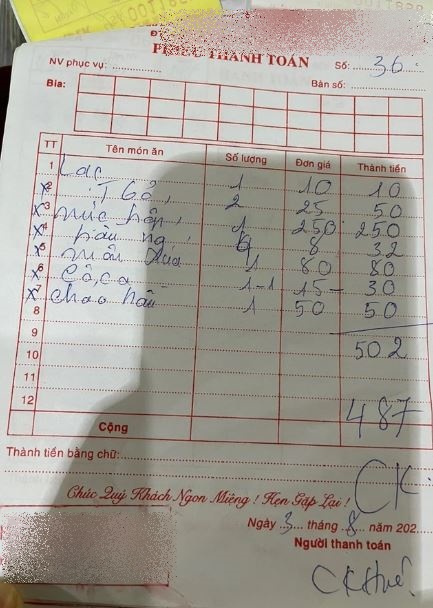 PHIẾU THANH TOÁN
Số: 36
NV phục vụ:
Bia:
Bàn số:
TT Tên món ăn Số lượng Đơn giá Thành tiền
1 Lạc 1 10 10
x2 2 25 50
x3 mực hấp 1 250 250
x4 8 32
x5 1 80 80
x6 Cô, ca 1-1 15- 30
x7 cháo hàu 1 50 50
8
9 502
10
11
12 487
Cộng
Thành tiền bằng chữ:
CK
Chúc Quý Khách Ngon Miệng ! Hẹn Gặp Lại !
Ngày 3 tháng 8 năm 202
Người thanh toán
CK Huế